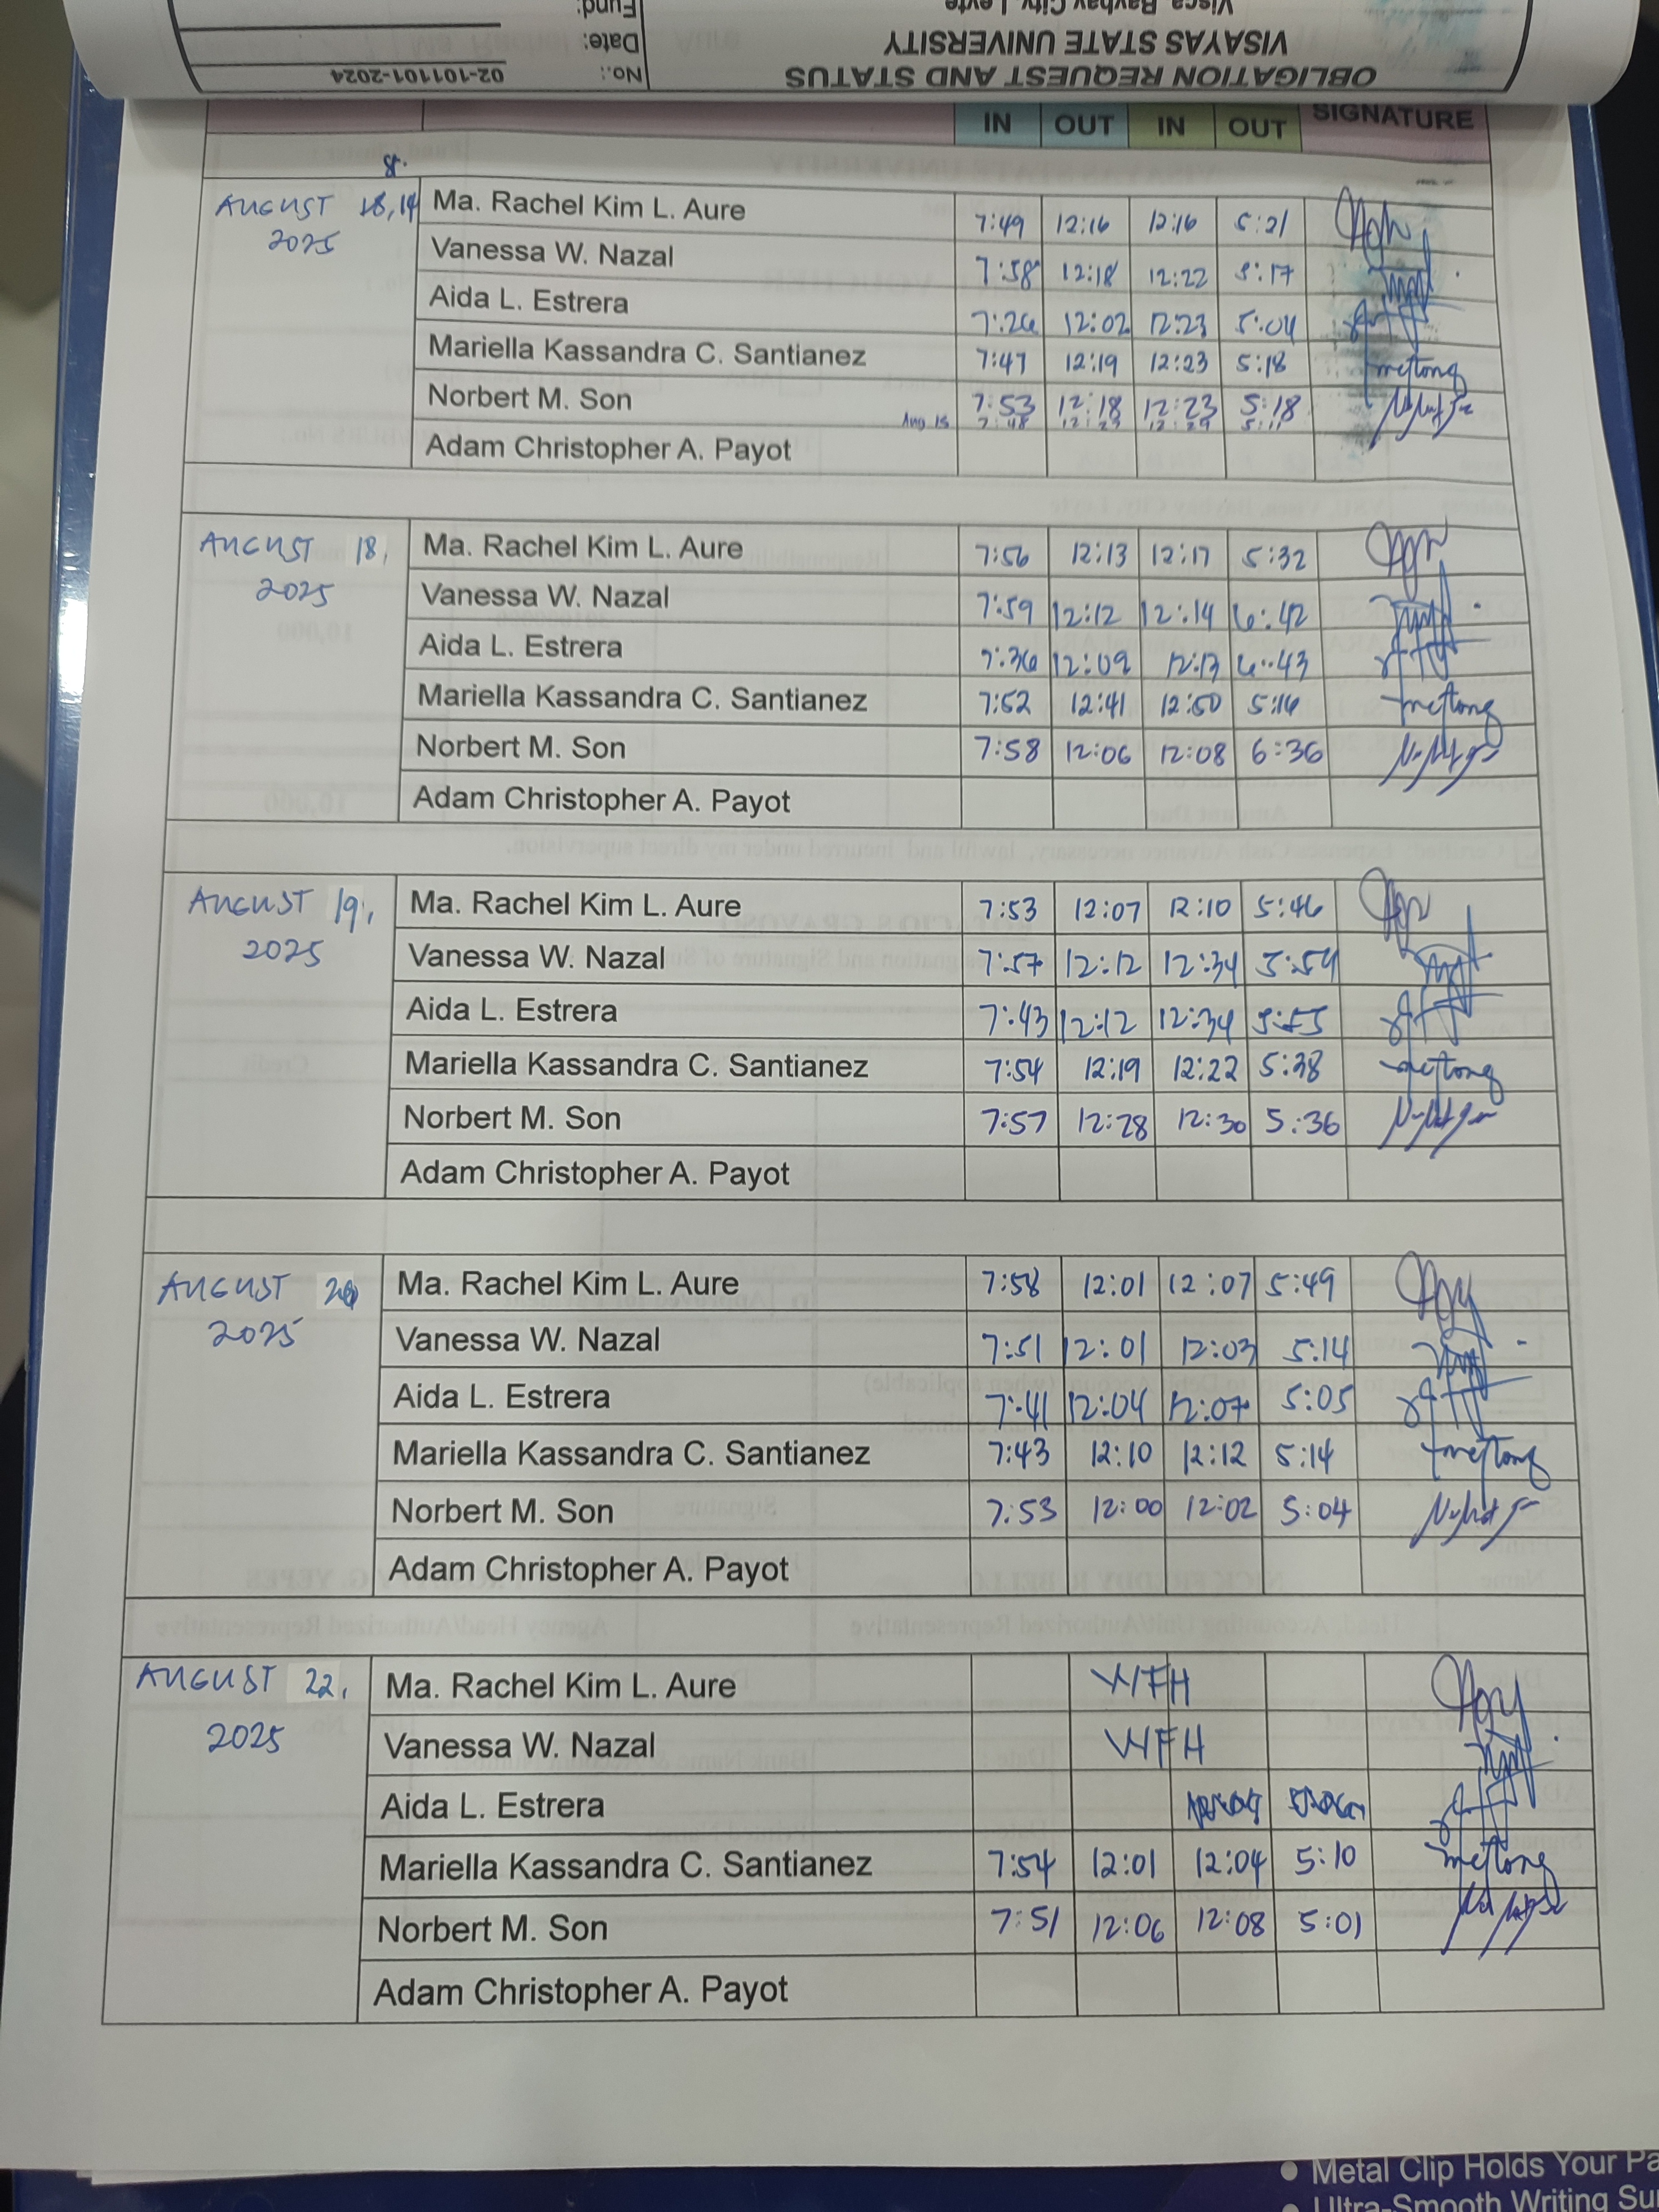 Fund:
Visca, Baybay City, Leyte
Date:
VISAYAS STATE UNIVERSITY
No.: 02-101101-2024
OBLIGATION REQUEST AND STATUS
IN OUT IN OUT SIGNATURE
8.
AUGUST 18,14 Ma. Rachel Kim L. Aure 7:49 12:16 12:16 5:21
2025
Vanessa W. Nazal 7:58 12:18 12:22 5:17
Aida L. Estrera 7:26 12:02 12:23 5:04
Mariella Kassandra C. Santianez 7:47 12:19 12:23 5:18
Norbert M. Son 7:53 12:18 12:23 5:18
Aug 15 7:48 12:29 12:29 5:11
Adam Christopher A. Payot
AUGUST 18, Ma. Rachel Kim L. Aure 7:56 12:13 12:17 5:32
2025 Vanessa W. Nazal 7:59 12:12 12:14 6:42
Aida L. Estrera 7:36 12:09 12:13 6:43
Mariella Kassandra C. Santianez 7:52 12:41 12:50 5:16
Norbert M. Son 7:58 12:06 12:08 6:36
Adam Christopher A. Payot
AUGUST 19, Ma. Rachel Kim L. Aure 7:53 12:07 12:10 5:46
2025 Vanessa W. Nazal 7:57 12:12 12:34 5:54
Aida L. Estrera 7:43 12:12 12:34 5:55
Mariella Kassandra C. Santianez 7:54 12:19 12:22 5:38
Norbert M. Son 7:57 12:28 12:30 5:36
Adam Christopher A. Payot
AUGUST 20 Ma. Rachel Kim L. Aure 7:58 12:01 12:07 5:49
2025 Vanessa W. Nazal 7:51 12:01 12:03 5:14
Aida L. Estrera 7:41 12:04 12:07 5:05
Mariella Kassandra C. Santianez 7:43 12:10 12:12 5:14
Norbert M. Son 7:53 12:00 12:02 5:04
Adam Christopher A. Payot
AUGUST 22, Ma. Rachel Kim L. Aure WFH
2025 Vanessa W. Nazal WFH
Aida L. Estrera
Mariella Kassandra C. Santianez 7:54 12:01 12:04 5:10
Norbert M. Son 7:51 12:06 12:08 5:01
Adam Christopher A. Payot
Metal Clip Holds Your
Ultra-Smooth Writing